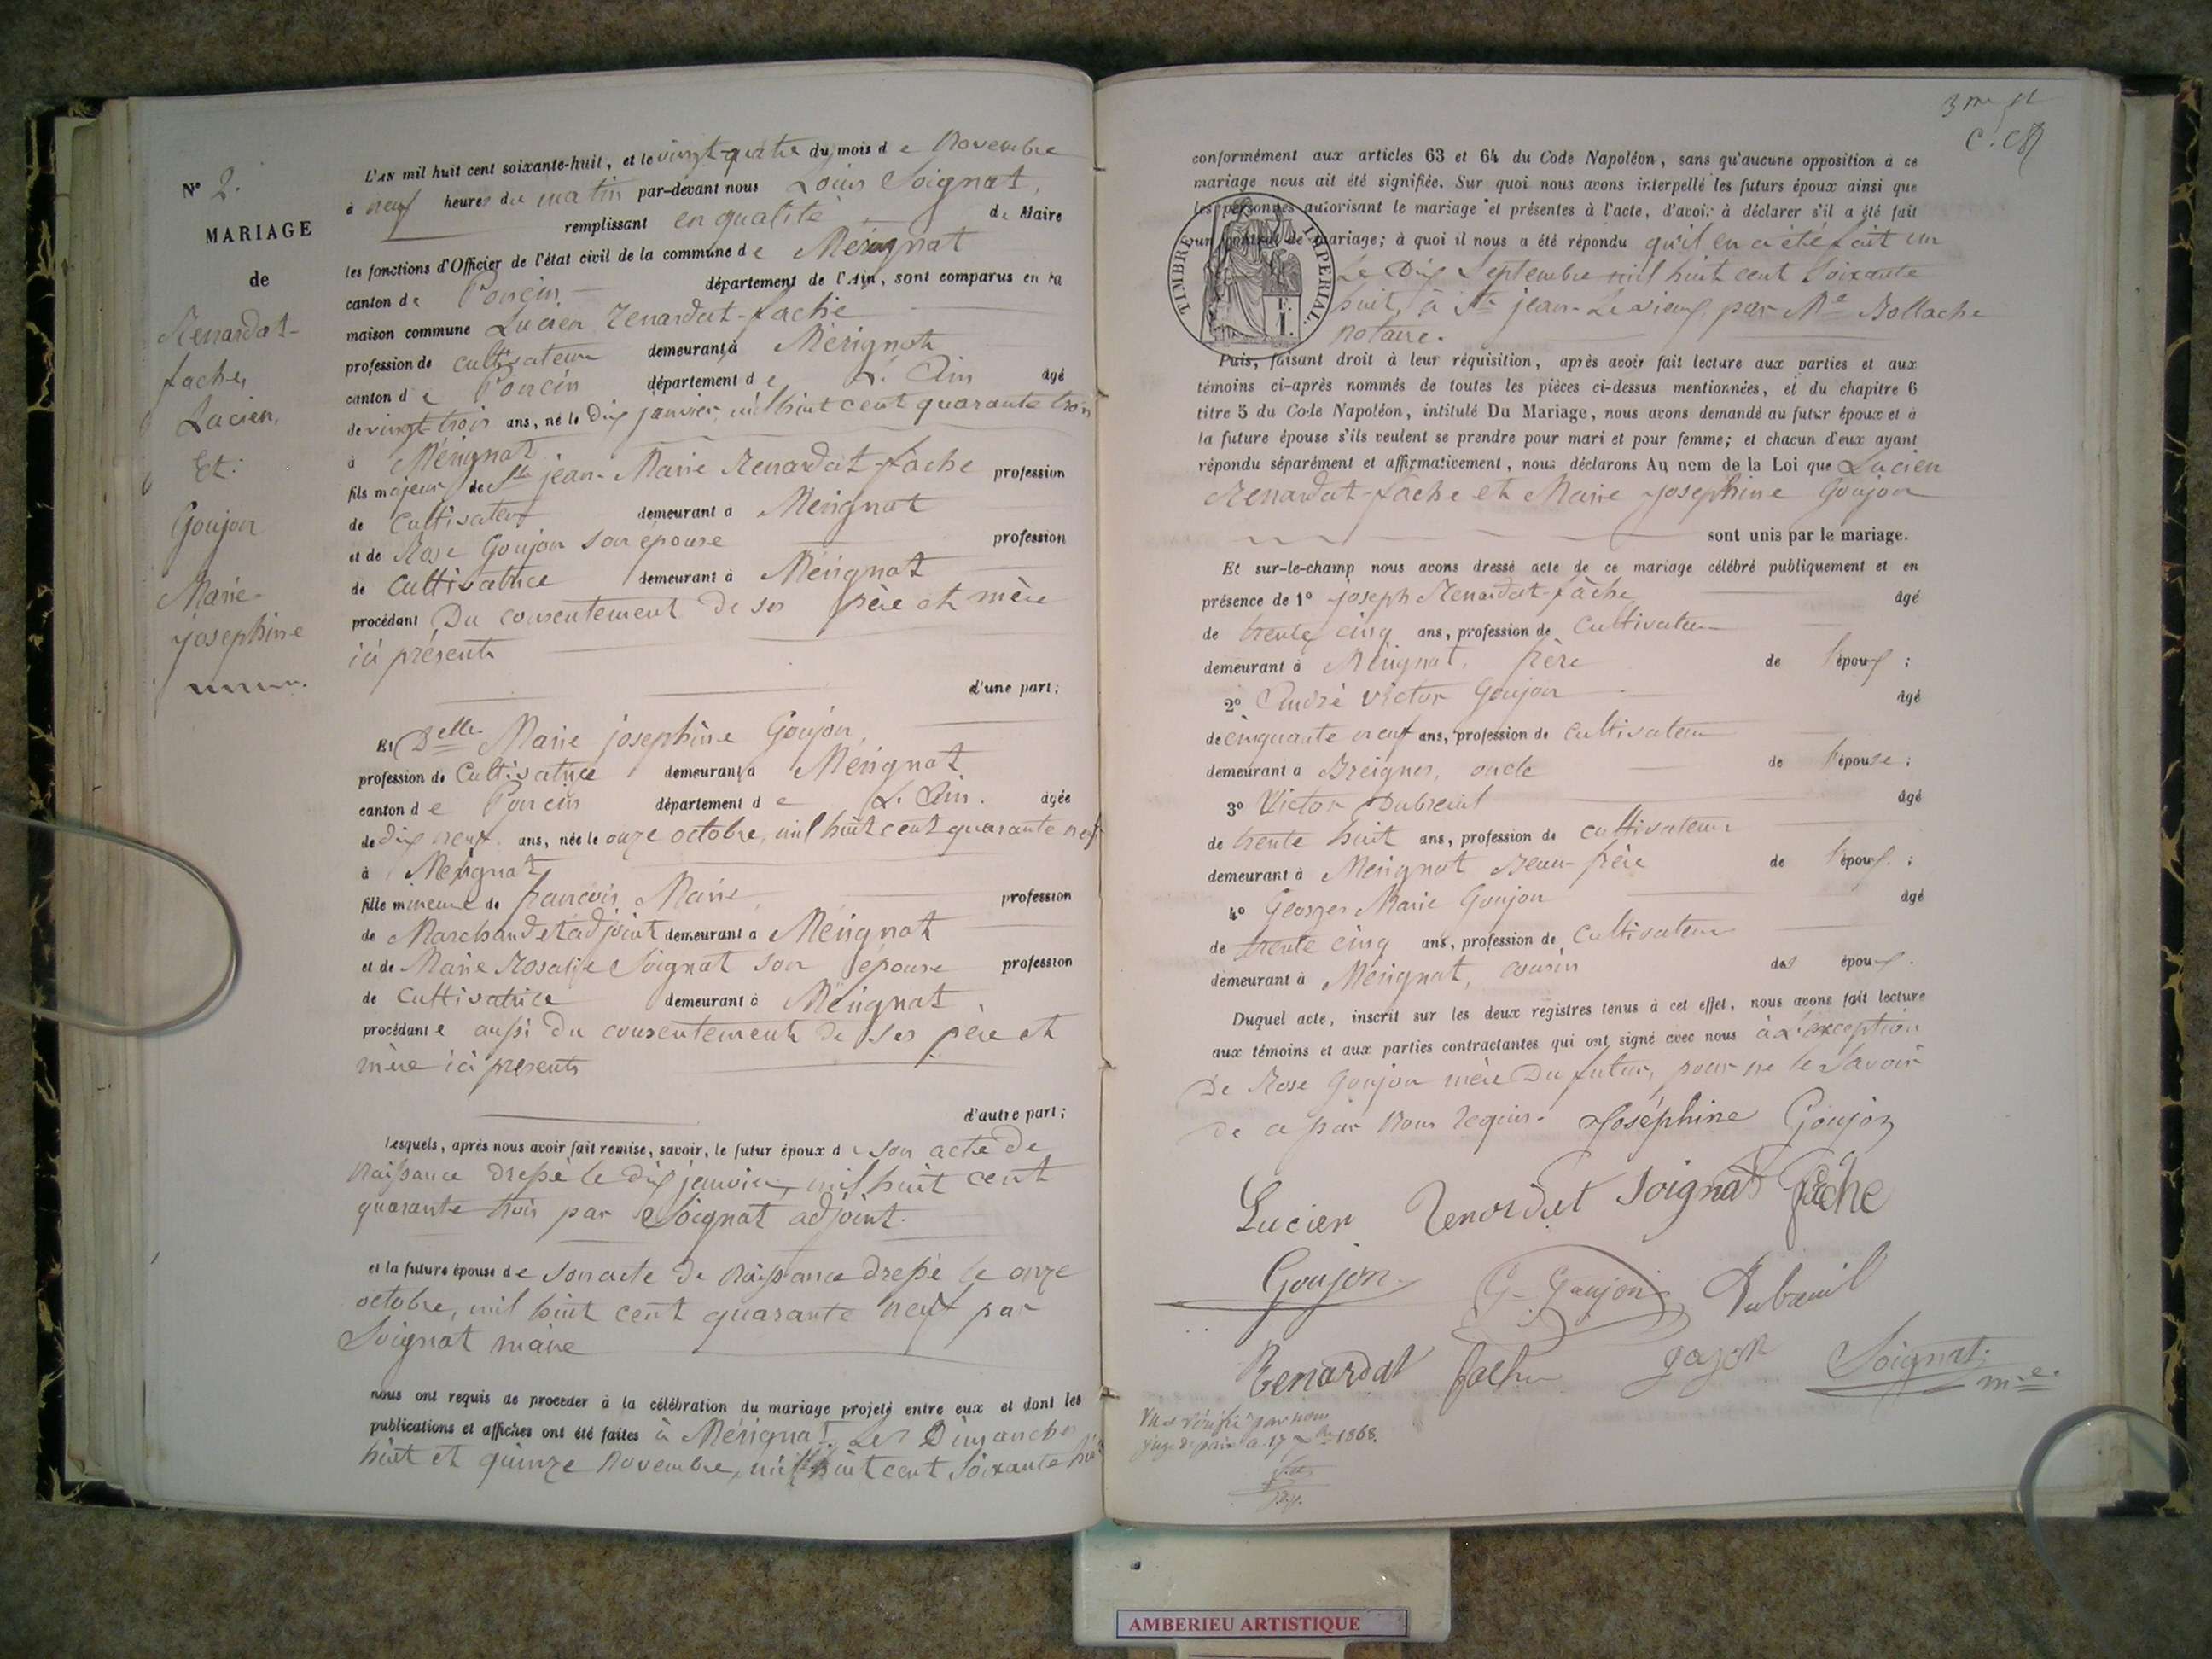 N° 2.
MARIAGE
de
Renardat-
fache,
Lucien,
Et
Goujon
Marie-
josephine
L'an mil huit cent soixante-huit, et le vingt-quatre du mois de Novembre
à neuf heures du matin par-devant nous Louis Soignat,
remplissant en qualité de Maire
les fonctions d'Officier de l'état civil de la commune de Mérignat
canton de Poncin département de l'Ain, sont comparus en la
maison commune Lucien Renardat-fache
profession de cultivateur demeurant à Mérignat
canton de Poncin département de L'Ain âgé
de vingt-trois ans, né le Dix janvier, mil huit cent quarante trois
à Mérignat
fils majeur de Sr jean-Marie Renardat-fache profession
de Cultivateur demeurant à Mérignat
et de Rose Goujon son épouse profession
de Cultivatrice demeurant à Mérignat
procédant Du consentement de ses père et mère
ici présents
d'une part;
Et Delle Marie josephine Goujon,
profession de Cultivatrice demeurant à Mérignat
canton de Poncin département de L'Ain. âgée
de dix neuf ans, née le onze octobre, mil huit cent quarante neuf
à Mérignat
fille mineure de francois Marie, profession
de Marchand et adjoint demeurant à Mérignat
et de Marie Rosalie Soignat son épouse profession
de Cultivatrice demeurant à Mérignat,
procédante aussi du consentement de ses père et
mère ici présents
d'autre part;
lesquels, après nous avoir fait remise, savoir, le futur époux de son acte de
Naissance dressé le dix janvier, mil huit cent
quarante trois par Soignat adjoint.
et la future épouse de son acte de Naissance dressé le onze
octobre, mil huit cent quarante neuf par
Soignat maire
nous ont requis de procéder à la célébration du mariage projeté entre eux et dont les
publications et affiches ont été faites à Mérignat Les Dimanches
huit et quinze Novembre, mil huit cent Soixante huit
conformément aux articles 63 et 64 du Code Napoléon, sans qu'aucune opposition à ce
mariage nous ait été signifiée. Sur quoi nous avons interpellé les futurs époux ainsi que
les personnes autorisant le mariage et présentes à l'acte, d'avoir à déclarer s'il a été fait
un contrat de mariage; à quoi il nous a été répondu qu'il en a été fait un
Le Dix Septembre mil huit cent Soixante
huit, à St jean-Le vieux, par Me Bollache
Notaire.
TIMBRE IMPERIAL.
Puis, faisant droit à leur réquisition, après avoir fait lecture aux parties et aux
témoins ci-après nommés de toutes les pièces ci-dessus mentionnées, et du chapitre 6
titre 5 du Code Napoléon, intitulé Du Mariage, nous avons demandé au futur époux et à
la future épouse s'ils veulent se prendre pour mari et pour femme; et chacun d'eux ayant
répondu séparément et affirmativement, nous déclarons Au nom de la Loi que Lucien
Renardat-fache et Marie josephine Goujon
sont unis par le mariage.
Et sur-le-champ nous avons dressé acte de ce mariage célébré publiquement et en
présence de 1° joseph Renardat-fâche âgé
de trente cinq ans, profession de Cultivateur
demeurant à Mérignat, frère de l'époux;
2° André Victor Goujon âgé
de cinquante neuf ans, profession de Cultivateur
demeurant à oncle de l'épouse;
3° Victor Dubreuil âgé
de trente huit ans, profession de Cultivateur
demeurant à Mérignat Beau-frère de l'époux;
4° Georges Marie Goujon âgé
de trente cinq ans, profession de Cultivateur
demeurant à Mérignat, cousin des époux.
Duquel acte, inscrit sur les deux registres tenus à cet effet, nous avons fait lecture
aux témoins et aux parties contractantes qui ont signé avec nous à L'exception
De Rose Goujon mère Du futur, pour ne le Savoir
de ce par Nous requis. Joséphine Goujon
Lucien Renardat Soignat Fâche
Goujon G- Goujon Dubreuil
Renardat fache Soignat
Vu et vérifié par nous
juge de paix 1868.
AMBERIEU ARTISTIQUE